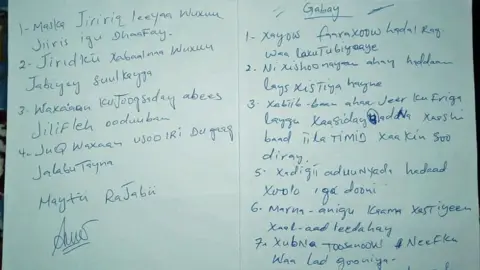 1- Maska Jiririq leeyaa Wuxuu
Jiiris igu Dhaafay.
2- Jiridku Xabaalaaa Wuxuu
Jabiyey suulkayga
3- Waxaaan kutoogsaday abees
JiliFleh ooduuban
4- JuQ Waxaan usoo IRi Dugaag
Jalabutayna
Maytu RaJabii
Gabay
1- Xayow faaraxoow hadal Rag
Waa laxutubiyaaye
2. Ni xishoonayaan ahay haddaan
lays XisTiya hayne
3 Xabiib baan ahaa Jeer Ku Friga
laygu Xaasiday
baad iila TiMiD Xaakin soo
diray.
5. Xadigii aduunyada hadaad
Xoolo iga dooni
6. Marna-anigu Kaama XisTiyeen
Xaat-aad leedahay
7. XubNa Toosanoow NeeFku
Waa lad gooniya-